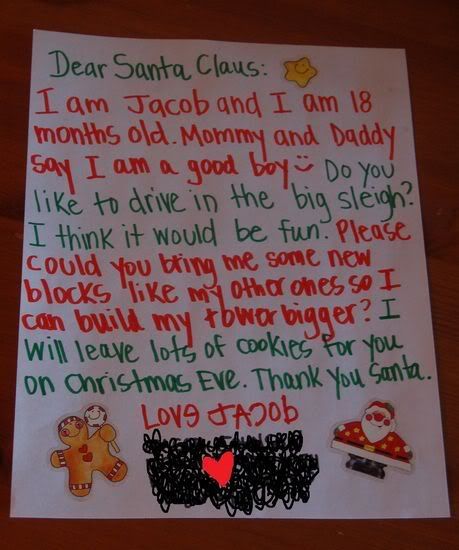 Dear Santa Claus:
I am Jacob and I am 18
months old. Mommy and Daddy
say I am a good boy Do you
like to drive in the big sleigh?
I think it would be fun. Please
could you bring me some new
blocks like my other ones so I
can build my tower bigger? I
will leave lots of cookies for you
on Christmas Eve. Thank you Santa.
LOVE JACOB